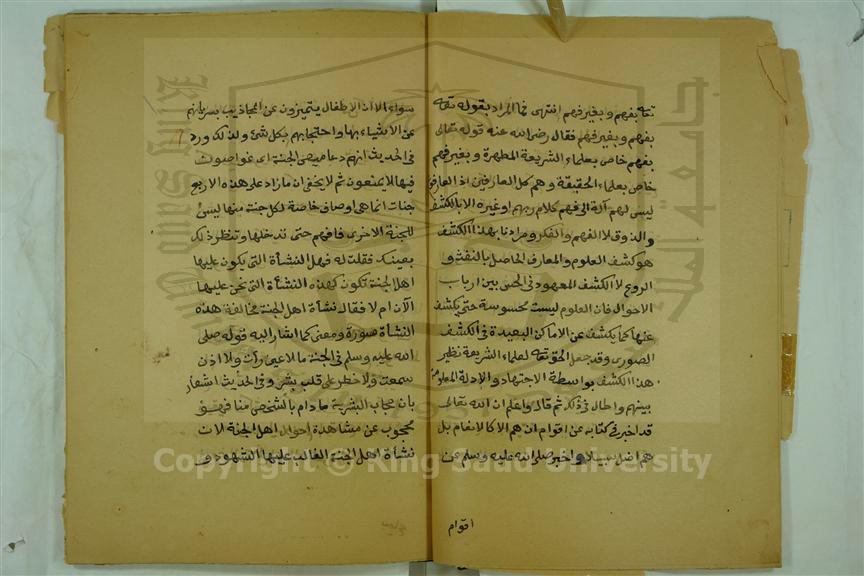 تعه بفهم وبغير فهم انتهى فما المراد بقوله تعه
بفهم وبغير فهم فقال رضى الله عنه قوله تعالى
بفهم خاص بعلماء الشريعة المطهرة وبغير فهم
خاص بعلماء الحقيقة وهم كل العارفين اذ العارف
ليس لهم آلة الى فهم كلام ربهم او غيره الا بالكشف
والذوق لا الفهم والفكر ومرادنا بهذا الكشف
هو كشف العلوم والمعارف الحاصل بالنفث
الروع لا الكشف المعهود في الحس بين ارباب
الاحوال فان العلوم ليست محسوسة حتى يكشف
عنها كما يكشف عن الاماكن البعيدة في الكشف
الصورى وقد جعل الحق تعه لعلماء الشريعة نظير
هذا الكشف بواسطة الاجتهاد والادلة المعلومة
بينهم واطال في ذلك ثم قال واعلم ان الله تعالى
قد اخبر في كتابه عن اقوام ان هم الا كالانعام بل
هم اضل سبيلا واخبر صلى الله عليه وسلم عن
اقوام
سواء الا ان الاطفال يتميزون عن المجاذيب بسريانهم
عن الاشياء بها واحتجابهم بكل شئ ولذلك ورد
في الحديث انهم دعاميص الجنة اى غواصون
فيها لا يمنعون ثم لا يخفى ان ما زاد على هذه الاربع
جنات انما هى اوصاف خاصة لكل جنة منها ليس
للجنة الاخرى فافهم حتى تدخلها وتنظر ذلك
بعينك فقلت له فهل النشأة التى يكون عليها
اهل الجنة تكون كهذه النشأة التى نحن عليها
الآن ام لا فقال نشأة اهل الجنة مخالفة هذه
النشأة صورة ومعنى كما اشار اليه قوله صلى
الله عليه وسلم في الجنة ما لا عين رأت ولا اذن
سمعت ولا خطر على قلب بشر وفي الحديث اشعار
بان حجاب البشرية ما دام بالشخص منا فهو
محجوب عن مشاهدة احوال اهل الجنة لان
نشأة اهل الجنة الغالب عليها الشهود و
جامعة الملك سعود
King Saud University
1957
Copyright © King Saud University